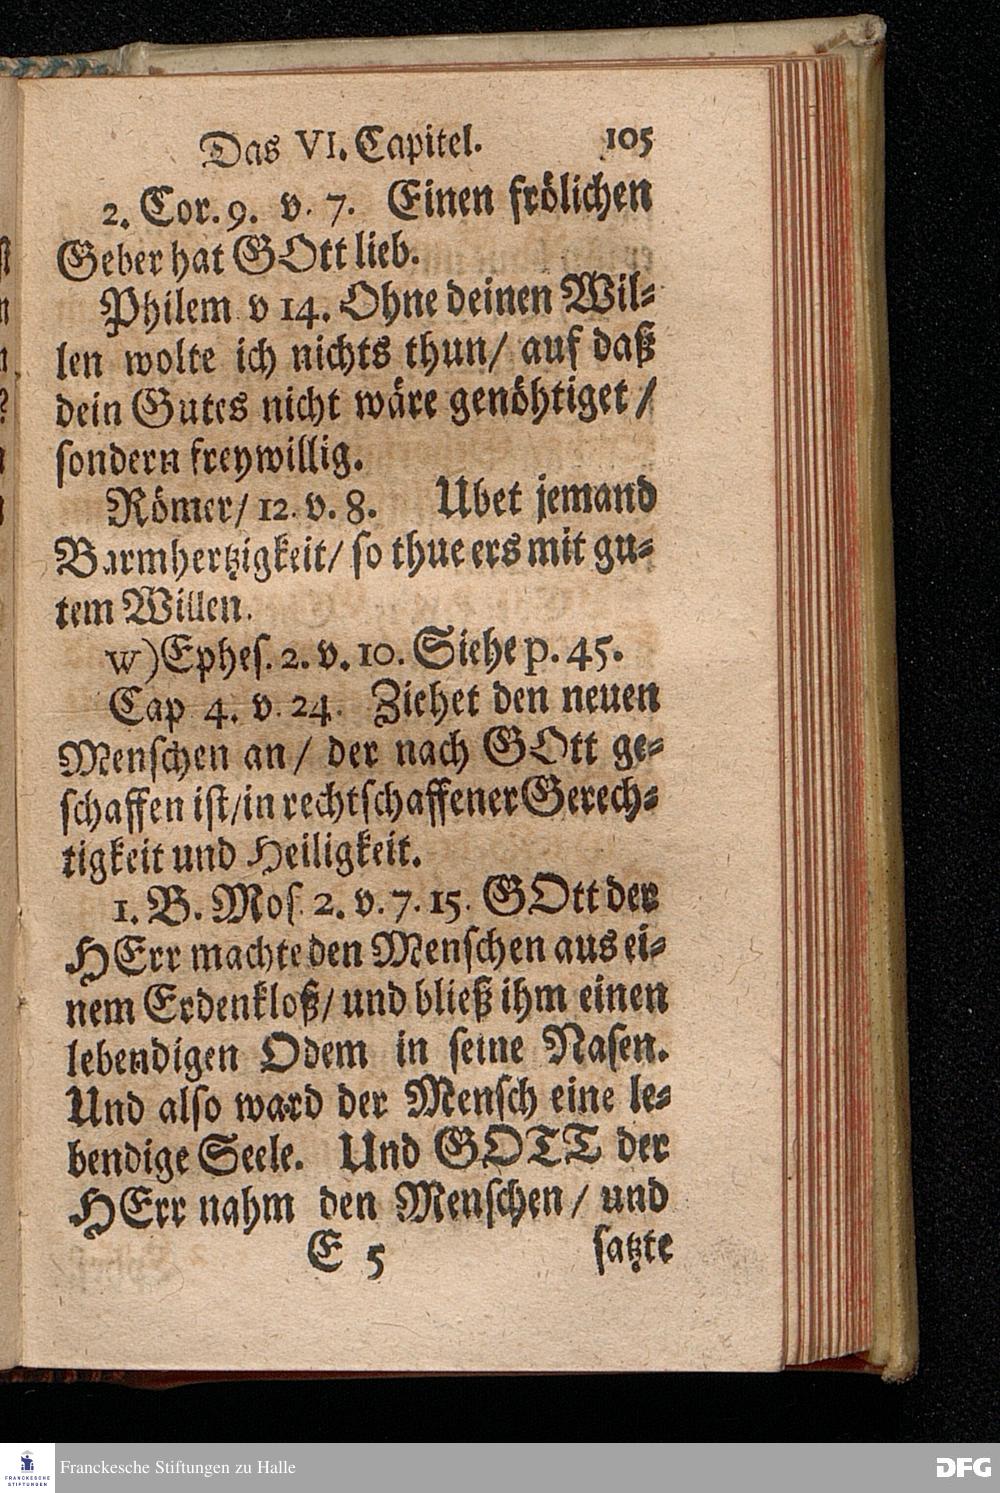 Das VI. Capitel. 105
2. Cor. 9. v. 7. Einen frölichen
Geber hat GOtt lieb.
Philem v 14. Ohne deinen Wil-
len wolte ich nichts thun/ auf daß
dein Gutes nicht wäre genöhtiget/
sondern freywillig.
Römer/ 12. v. 8. Ubet jemand
Barmhertzigkeit/ so thue ers mit gu-
tem Willen.
w) Ephes. 2. v. 10. Siehe p. 45.
Cap 4. v. 24. Ziehet den neuen
Menschen an/ der nach GOtt ge-
schaffen ist/ in rechtschaffener Gerech-
tigkeit und Heiligkeit.
1. B. Mos. 2. v. 7. 15. GOtt der
HErr machte den Menschen aus ei-
nem Erdenkloß/ und bließ ihm einen
lebendigen Odem in seine Nasen.
Und also ward der Mensch eine le-
bendige Seele. Und GOTT der
HErr nahm den Menschen/ und
E 5 satzte
FRANCKESCHE STIFTUNGEN
Franckesche Stiftungen zu Halle
DFG